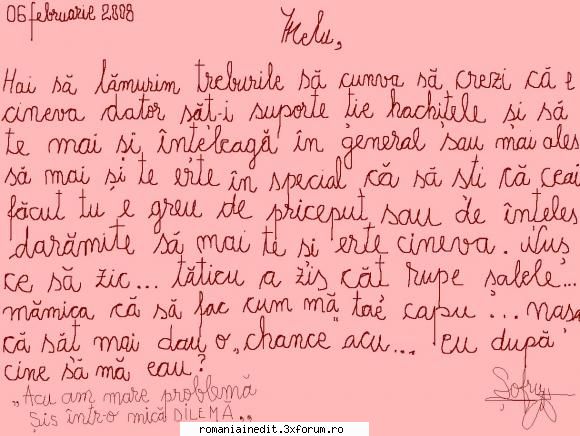 06 februarie 2008
Melu,
Hai să lămurim treburile să cumva să crezi că e
cineva dator săt-i suporte tie hachițele și să
te mai și înțeleagă în general sau mai ales
să mai și te erte în special că să sti că ceai
făcut tu e greu de priceput sau de înțeles
darămite să mai te și erte cineva. Nuș
ce să zic... tăticu a zis căt rupe șalele...
mămica că să fac cum mă "tae capu"... nașa
că săt mai dau o "chance" acu... eu după
cine să mă eau?
"Acu am mare problemă
Șis într-o mică DILEMĂ"
romaniainedit.3xforum.ro